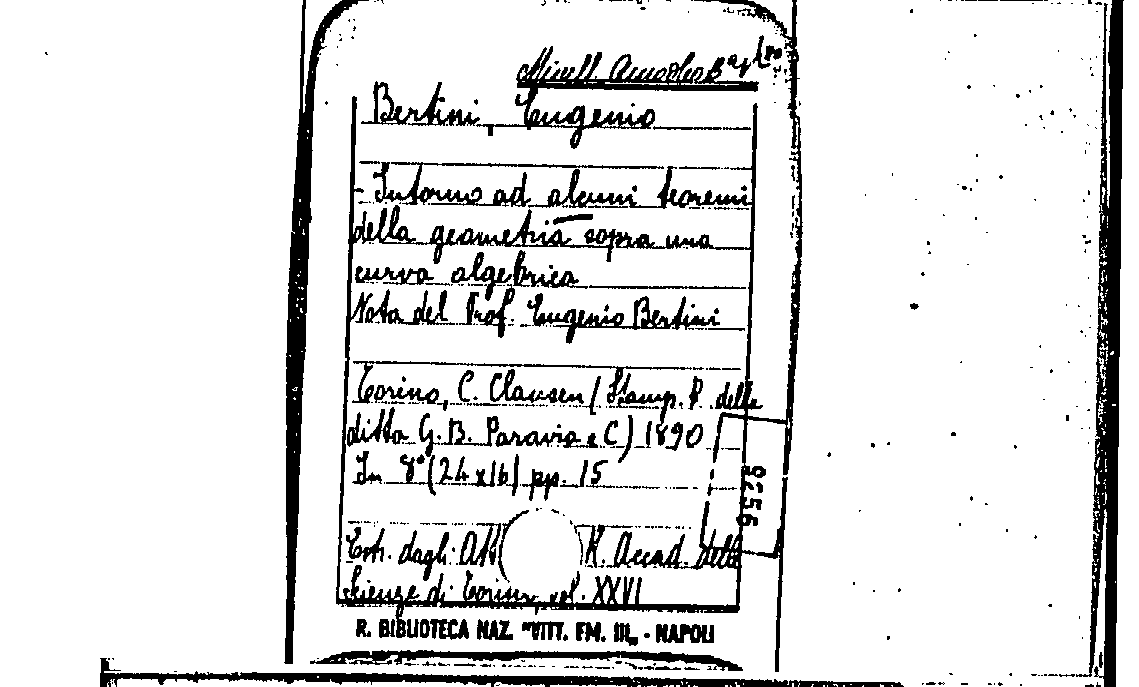 Bertini, Eugenio
- Intorno ad alcuni teoremi
della geometria sopra una
curva algebrica
Nota del Prof. Eugenio Bertini
Torino, C. Clausen (Stamp. R. della
ditta G. B. Paravia e C) 1890
In 8° (24 x 16) pp. 15
Estr. dagli Att R. Accad. delle
Scienze di Torino, vol. XXVI
R. BIBLIOTECA NAZ. "VITT. EM. III„ - NAPOLI